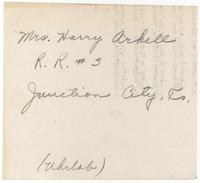 Mrs. Harry Arkell
R. R. # 3
Junction City, Ks.
(Uhrlob)